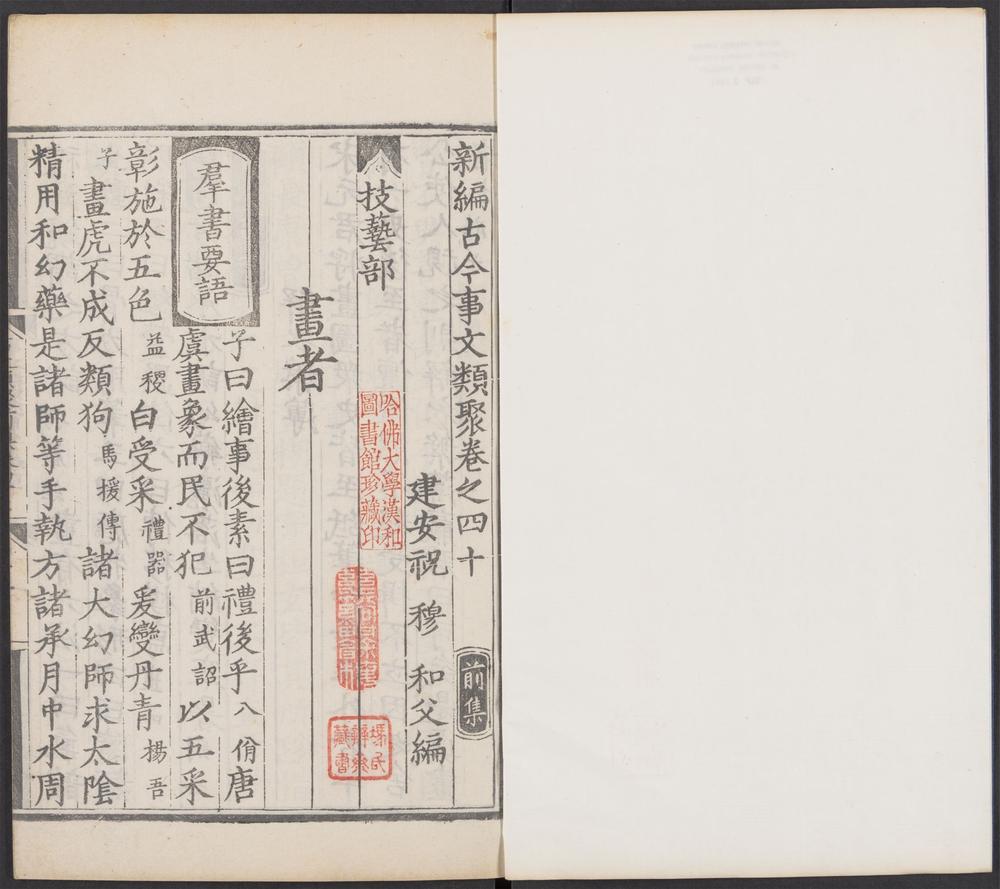 新編古今事文類聚卷之四十 前集
建安祝 穆 和父編
技藝部
畫者
羣書要語 子曰繪事後素曰禮後乎八佾唐
虞畫象而民不犯前武詔以五采
彰施於五色益稷白受采禮器爰變丹青揚吾
子畫虎不成反類狗馬援傳諸大幻師求太陰
精用和幻藥是諸師等手執方諸承月中水周
哈佛大學漢和
圖書館珍藏印